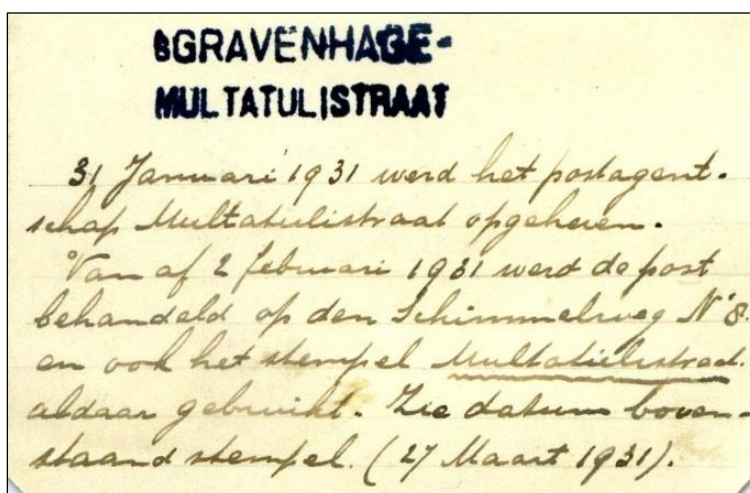 sGRAVENHAGE-
MULTATULISTRAAT
31 Januari 1931 werd het postagent-
schap Multatulistraat opgeheven.
Van af 2 februari 1931 werd de post
behandeld op den Schimmelweg No 8.
en ook het stempel Multatulistraat.
aldaar gebruikt. Zie datum boven-
staand stempel. (27 Maart 1931).